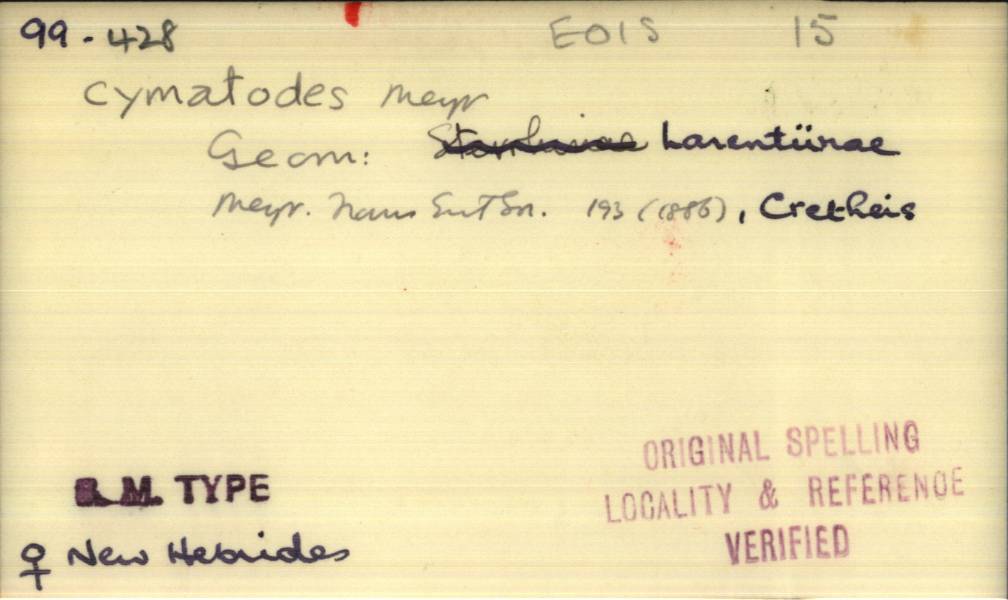 99.428 EOIS 15
cymatodes Meyr
Geom: Sterrhinae Larentiinae
Meyr. Trans Ent Sn. 193 (1886), Cretheis
B.M. TYPE
♀ New Hebrides
ORIGINAL SPELLING
LOCALITY & REFERENCE
VERIFIED